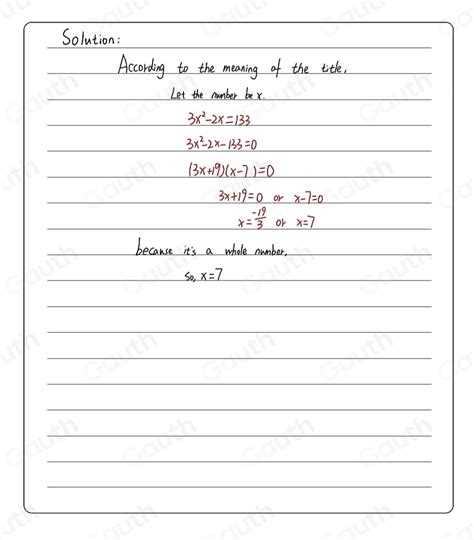 Solution:
According to the meaning of the title,
Let the number be x.
3x²-2x=133
3x²-2x-133=0
(3x+19)(x-7)=0
3x+19=0 or x-7=0
x=-19/3 or x=7
because it's a whole number,
so, x=7